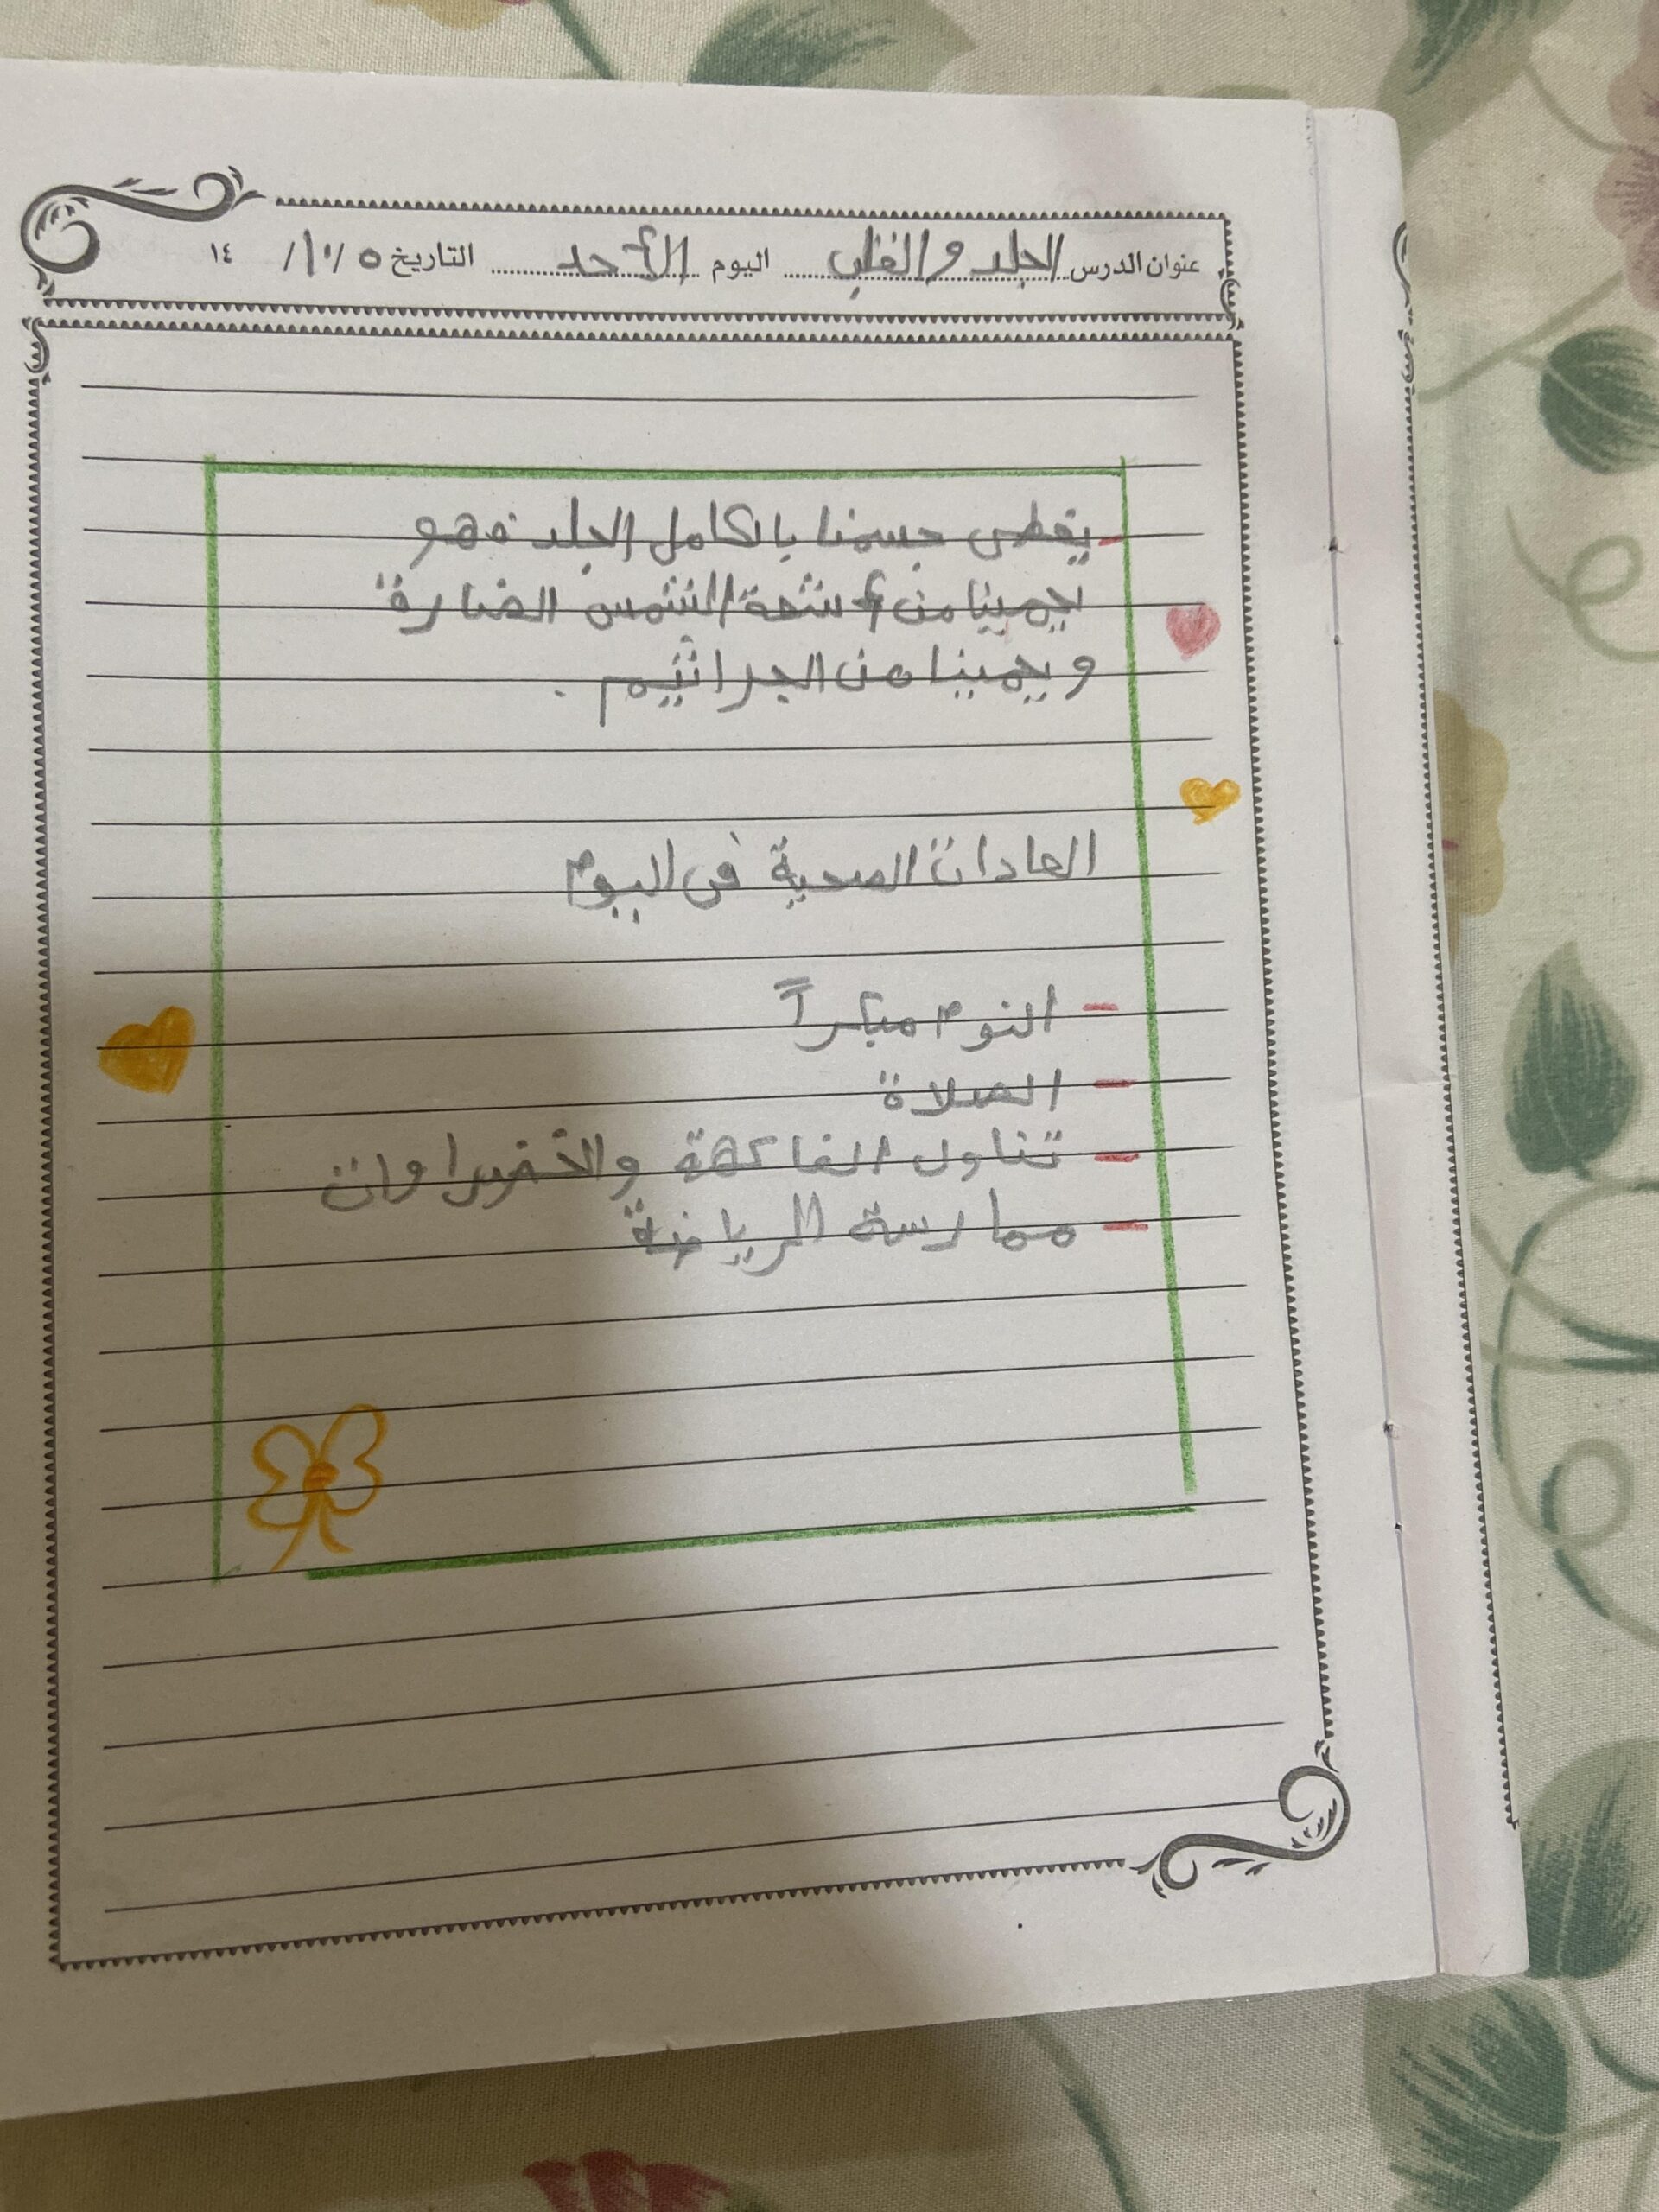 عنوان الدرس الجلد والقلب اليوم الأحد التاريخ ١٠/٥/ ١٤
- يغطي جسمنا بالكامل الجلد فهو
يحمينا من أشعة الشمس الضارة
ويحمينا من الجراثيم .
العادات الصحية في اليوم
- النوم مبكراً
- الصلاة
- تناول الفاكهة والخضراوات
- ممارسة الرياضة